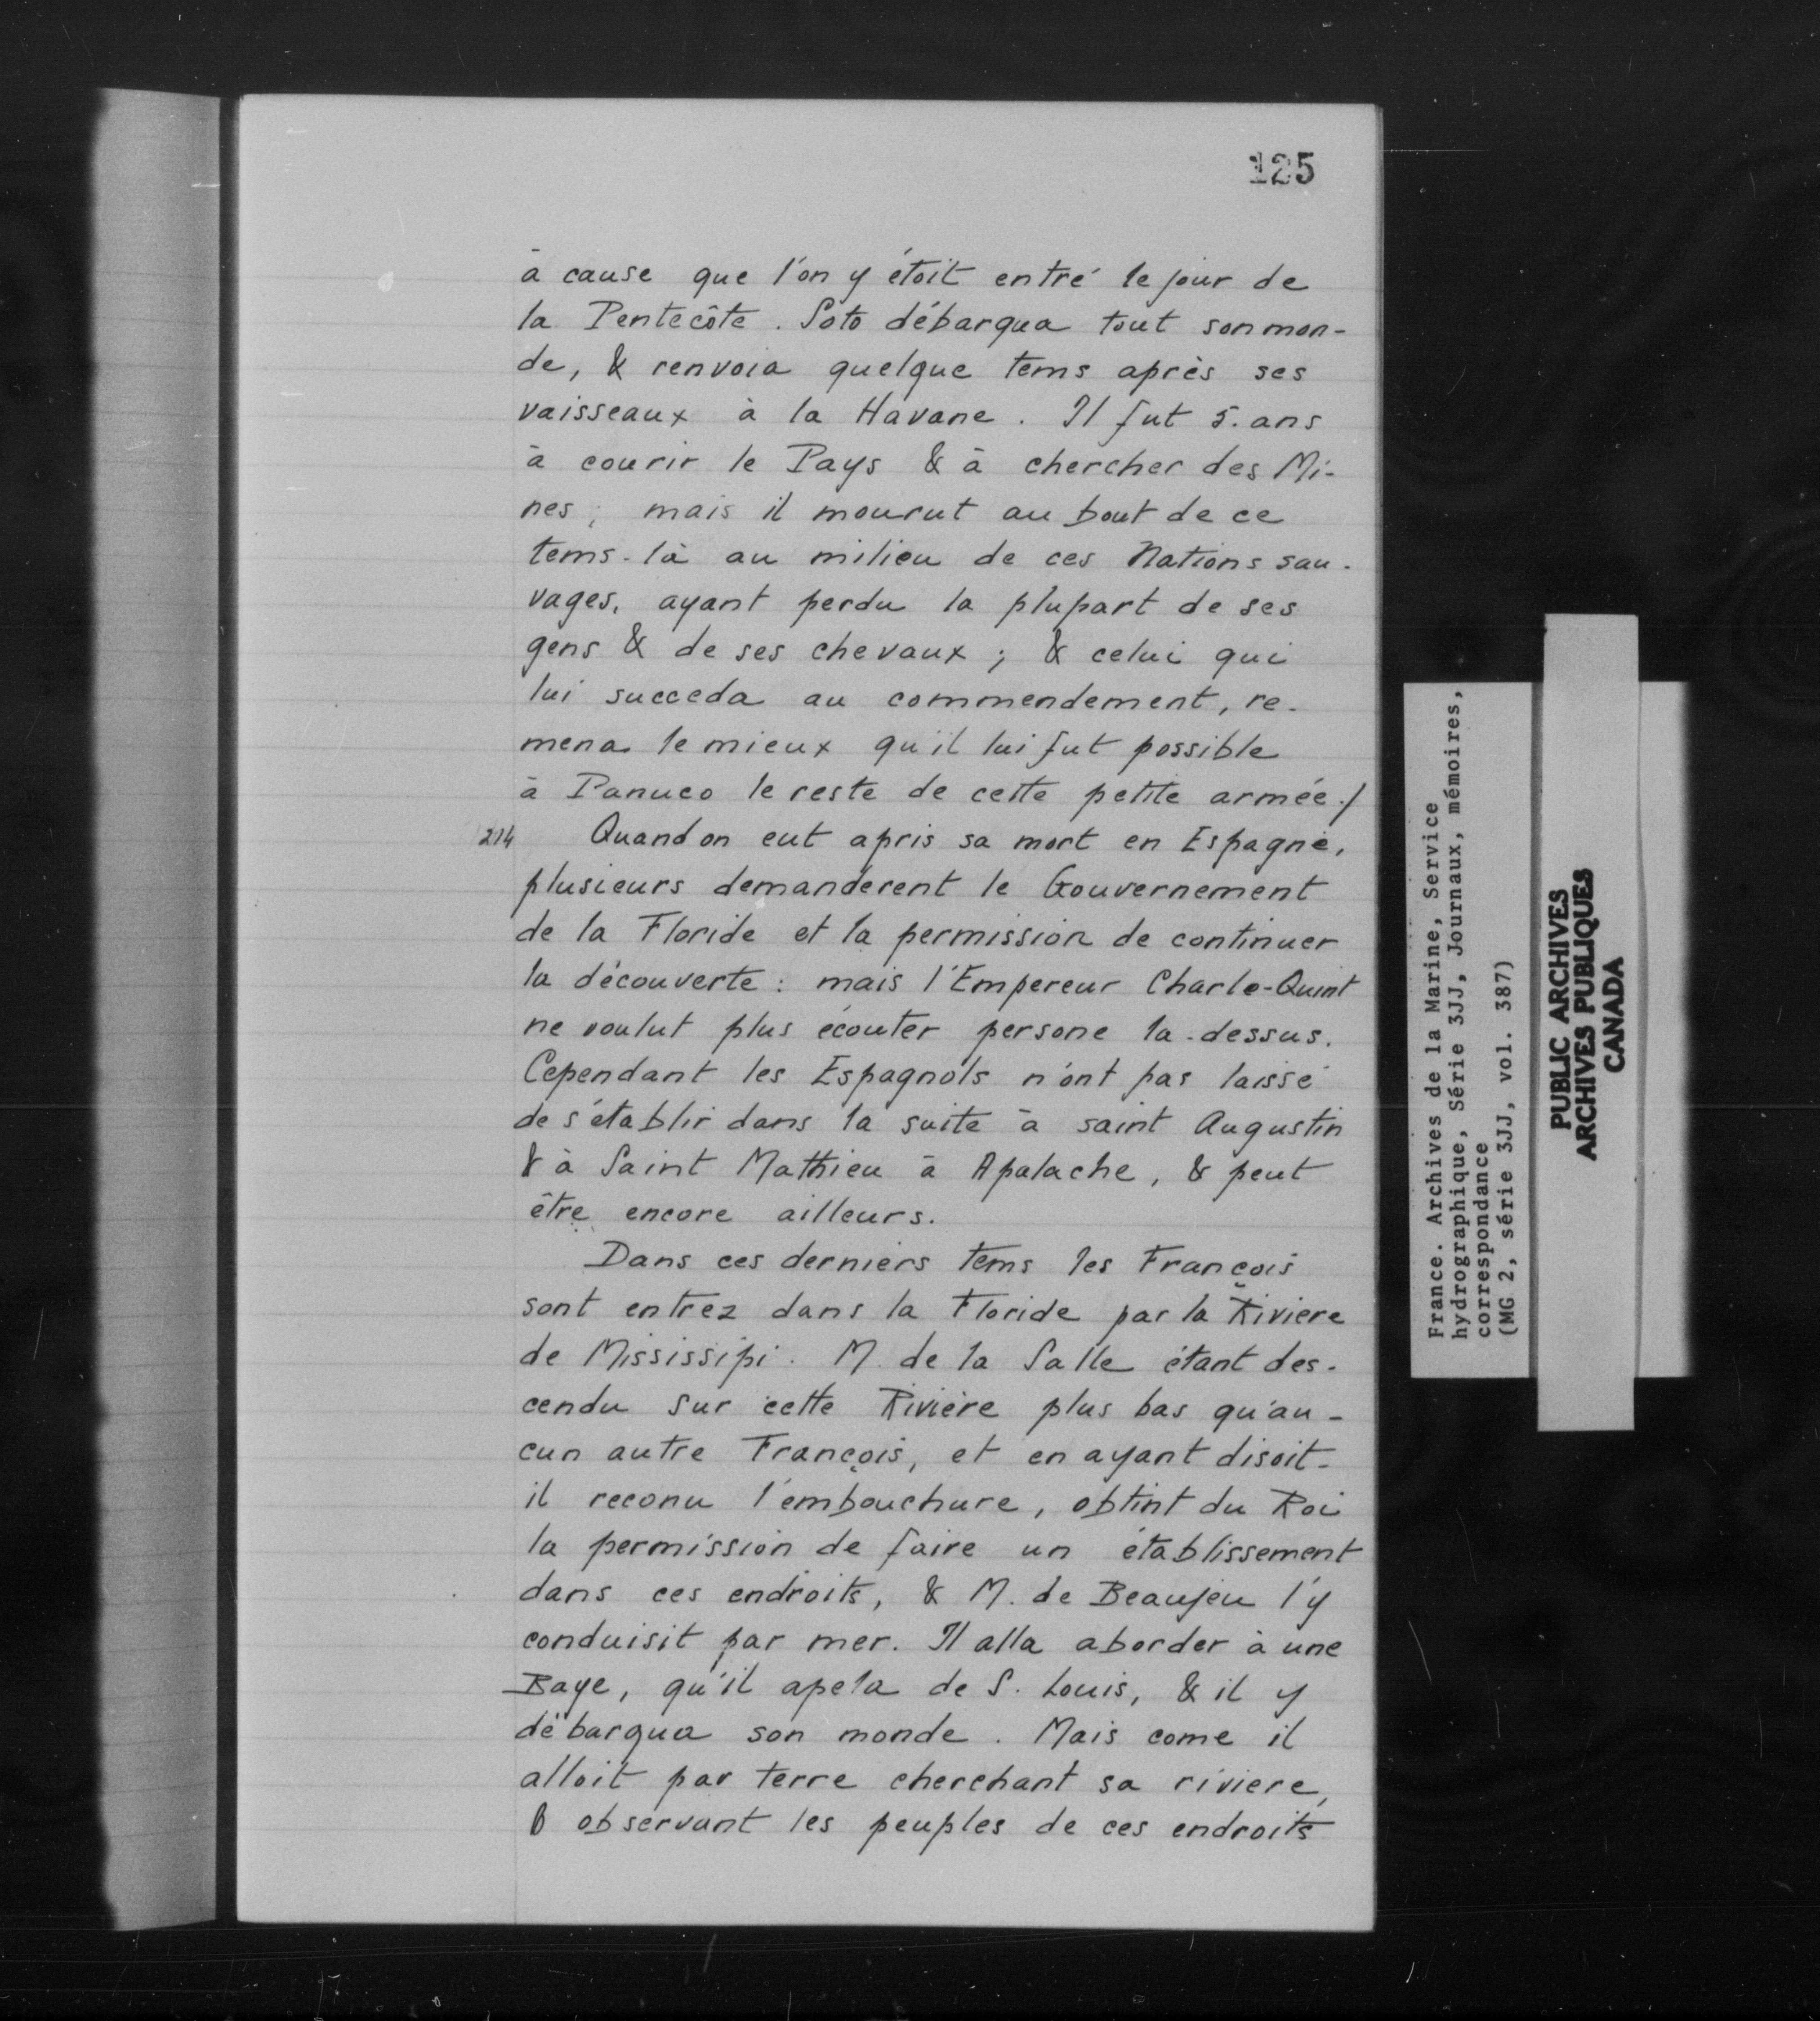 125
à cause que l'on y étoit entré le jour de
la Pentecôte. Soto débarqua tout son mon-
de, & renvoia quelque tems après ses
vaisseaux à la Havane. Il fut 5. ans
à courir le Pays & à chercher des Mi-
nes; mais il mourut au bout de ce
tems-là au milieu de ces Nations sau-
vages, ayant perdu la plupart de ses
gens & de ses chevaux; & celui qui
lui succeda au commendement, re-
mena le mieux qu'il lui fut possible
à Panuco le reste de cette petite armée./
214 Quand on eut apris sa mort en Espagne,
plusieurs demanderent le Gouvernement
de la Floride et la permission de continuer
la découverte: mais l'Empereur Charle-Quint
ne voulut plus écouter persone la-dessus.
Cependant les Espagnols n'ont pas laissé
de s'établir dans la suite à saint Augustin
& à Saint Mathieu à Apalache, & peut
être encore ailleurs.
Dans ces derniers tems les François
sont entrez dans la Floride par la Riviere
de Mississipi. M. de la Salle étant des-
cendu sur cette Rivière plus bas qu'au-
cun autre François, et en ayant disoit-
il reconu l'embouchure, obtint du Roi
la permission de faire un établissement
dans ces endroits, & M. de Beaujeu l'y
conduisit par mer. Il alla aborder à une
Baye, qu'il apela de S. Louis, & il y
débarqua son monde. Mais come il
alloit par terre cherchant sa riviere,
& observant les peuples de ces endroits
France. Archives de la Marine, Service
hydrographique, Série 3JJ, Journaux, mémoires,
correspondance
(MG 2, série 3JJ, vol. 387)
PUBLIC ARCHIVES
ARCHIVES PUBLIQUES
CANADA